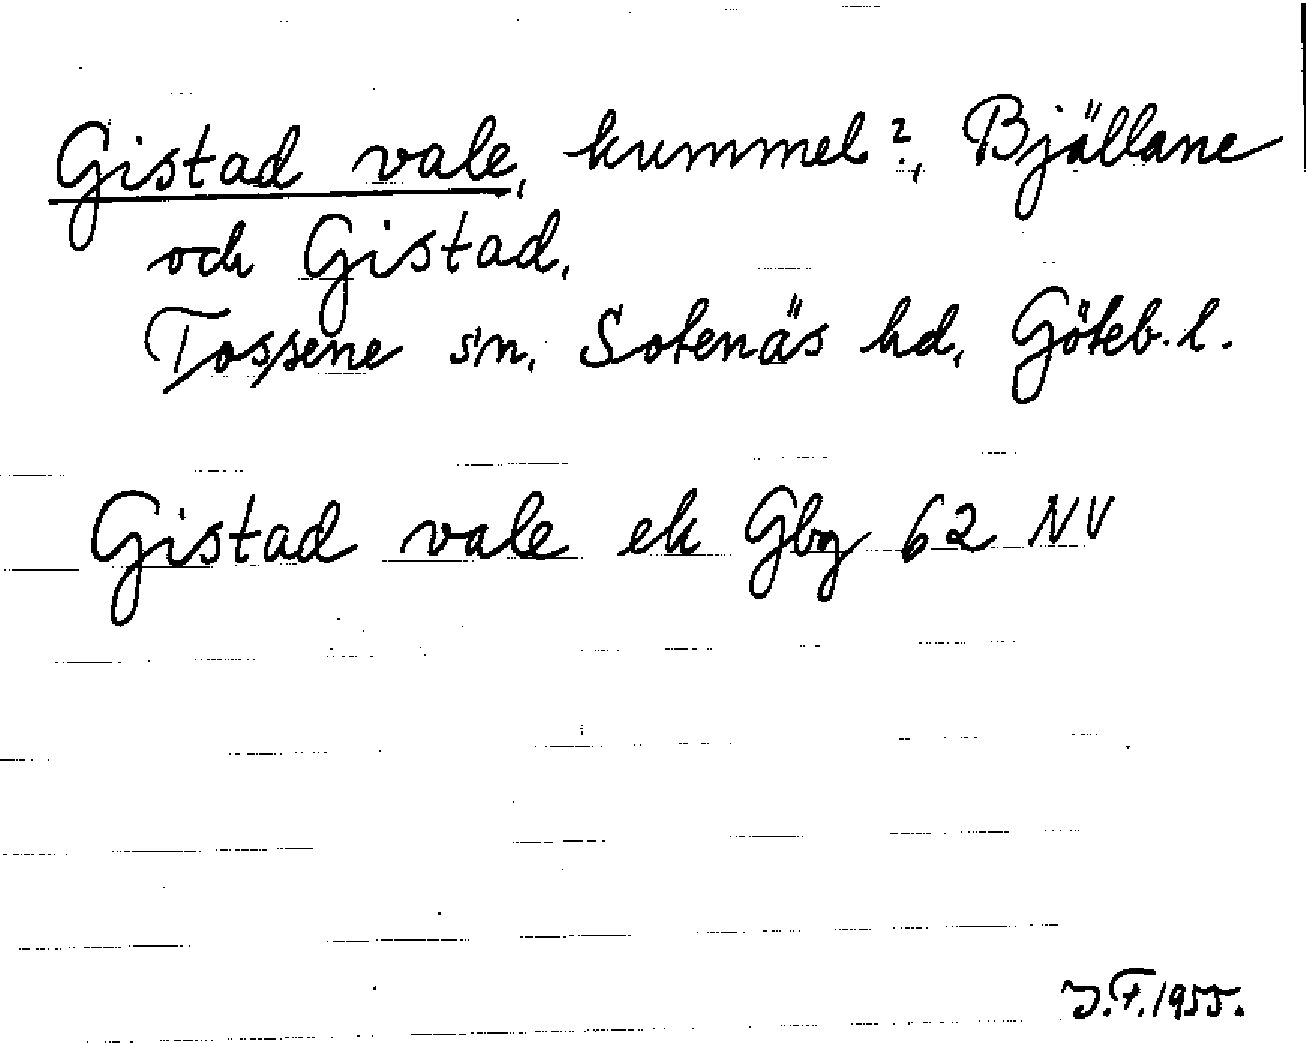 Gistad vale, kummel?, Bjällane
och Gistad.
Tossene sn. Sotenäs hd. Göteb. l.
Gistad vale ek Gbg 62 NV
J.F. 1955.